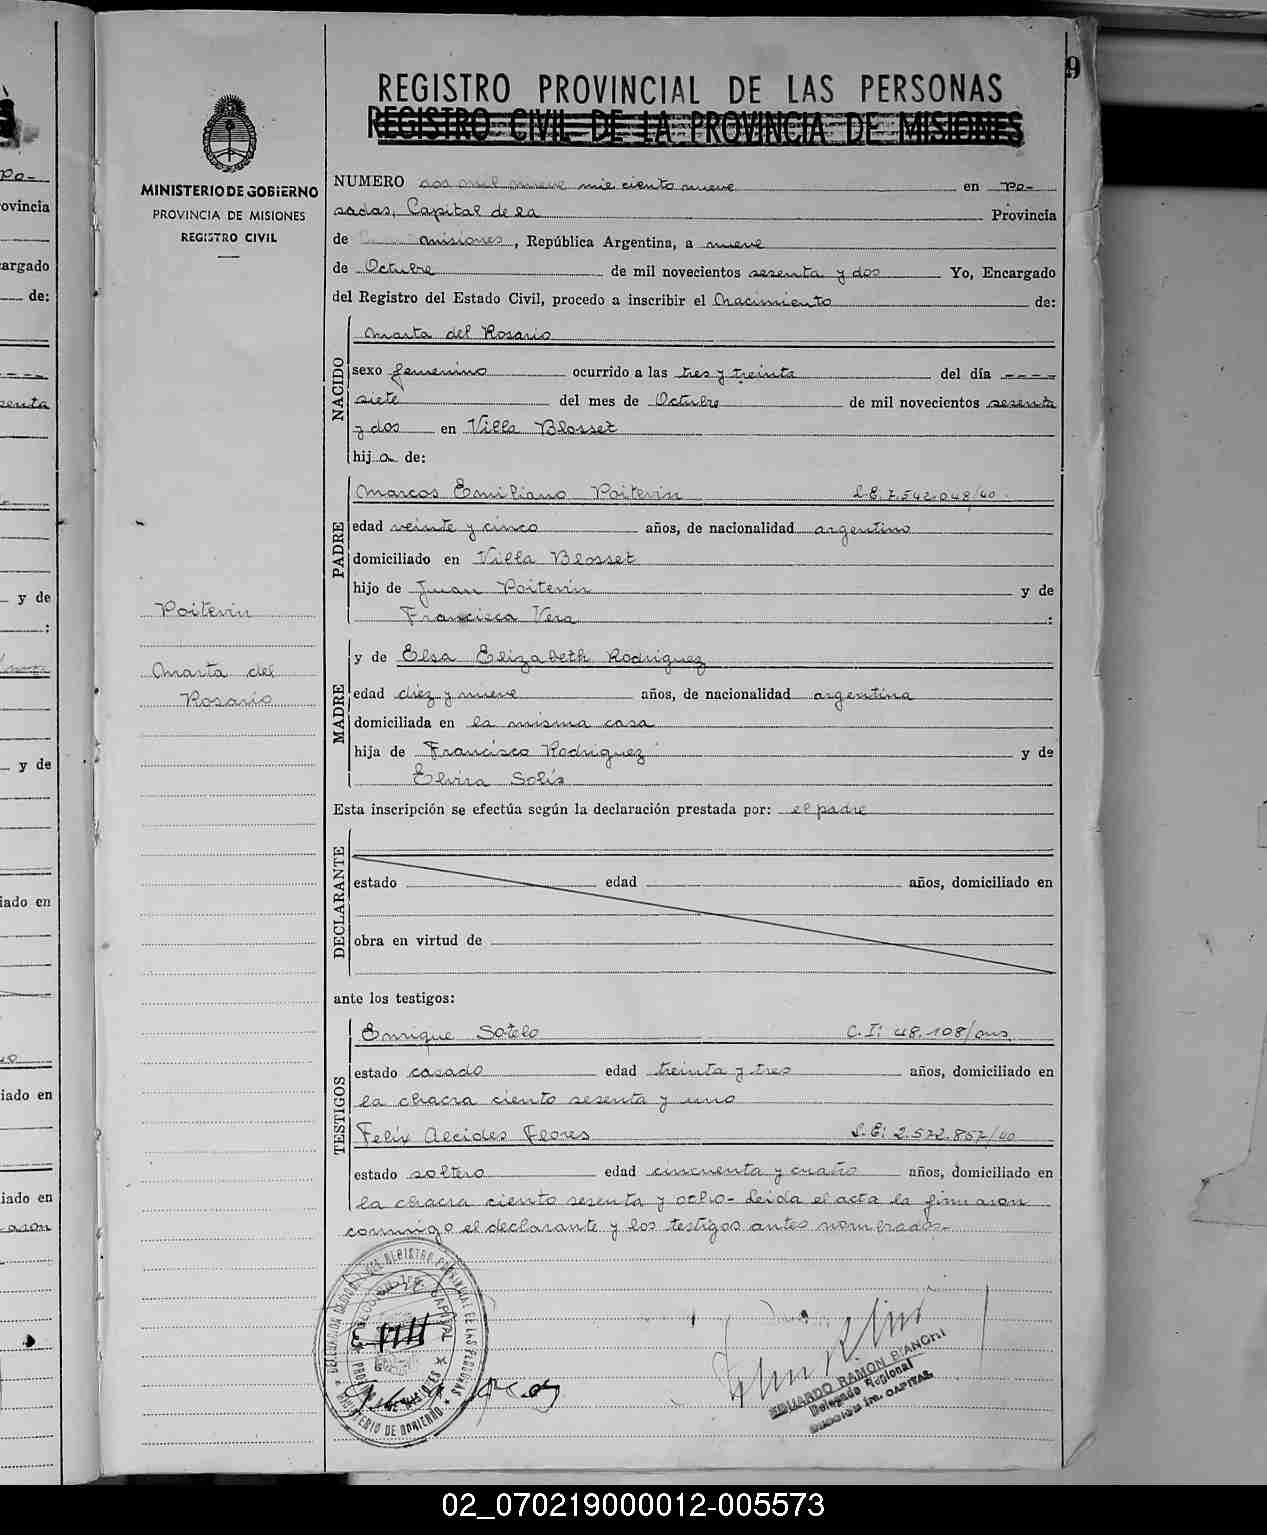 9
REGISTRO PROVINCIAL DE LAS PERSONAS
REGISTRO CIVIL DE LA PROVINCIA DE MISIONES
MINISTERIO DE GOBIERNO
PROVINCIA DE MISIONES
REGISTRO CIVIL
Poitevin
Marta del
Rosario
NUMERO dos mil nueve mil ciento nueve en Po-
sadas, Capital de la Provincia
de Misiones, República Argentina, a nueve
de Octubre de mil novecientos sesenta y dos Yo, Encargado
del Registro del Estado Civil, procedo a inscribir el Nacimiento de:
NACIDO
Marta del Rosario
sexo femenino ocurrido a las tres y treinta del día ----
siete del mes de Octubre de mil novecientos sesenta
y dos en Villa Blosset
hij a de:
PADRE
Marcos Emiliano Poitevin L.E. 7.542.048/40.
edad veinte y cinco años, de nacionalidad argentino
domiciliado en Villa Blosset
hijo de Juan Poitevin y de
Francisca Vera :
MADRE
y de Elsa Elizabeth Rodriguez
edad diez y nueve años, de nacionalidad argentina
domiciliada en la misma casa
hija de Francisco Rodriguez y de
Elvira Solis
Esta inscripción se efectúa según la declaración prestada por: el padre
DECLARANTE
estado edad años, domiciliado en
obra en virtud de
ante los testigos:
TESTIGOS
Enrique Sotelo C.I: 48.108/ons.
estado casado edad treinta y tres años, domiciliado en
la chacra ciento sesenta y uno
Felix Alcides Flores L.E: 2.572.857/40
estado soltero edad cincuenta y cuatro años, domiciliado en
la chacra ciento sesenta y ocho- Leida el acta la firmaron
conmigo el declarante y los testigos antes nombrados-
EDUARDO RAMON BIANCHI
Delegado Regional
Sección 1ra. CAPITAL
02_070219000012-005573